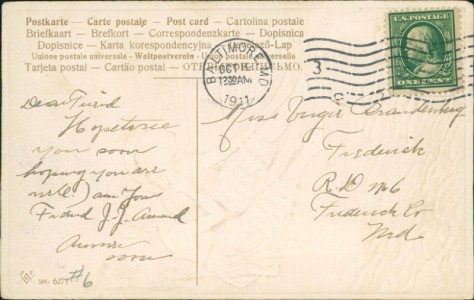 Postkarte — Carte postale — Post card — Cartolina postale
Briefkaart — Brefkort — Correspondenzkarte — Dopisnica
Dopisnice — Karta korespondencyjna — -Lap
Unione postale universale - Weltpostverein - Union postale universelle
Tarjeta postal — Cartão postal —
BALTIMORE, MD
OCT
1230AM
1911
3
U.S. POSTAGE
ONE CENT
Dear
Hope to see
you soon
hoping you are
well. I am your
Friend J.J.
soon
#6
Miss Brandenburg
Frederick
R.D. No 6
Frederick Co
Md.